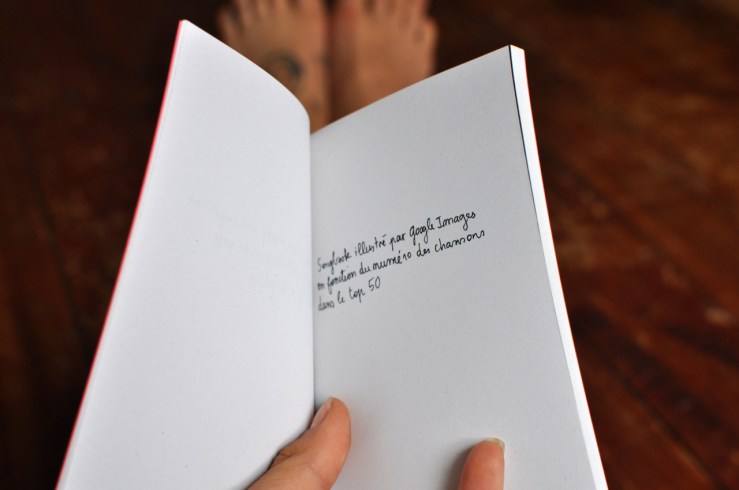 Songbook illustré par Google Images
en fonction du numéro des chansons
dans le top 50